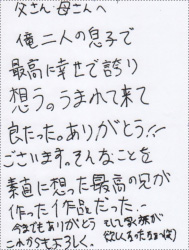 父さん・母さんへ
俺二人の息子で
最高に幸せで誇り
想う。うまれて来て
良たった。ありがとう!!
ございます。そんなことを
素直に想った最高の兄が
作った作品だった…
今までもありがとう そして家族が
これからもよろしく。